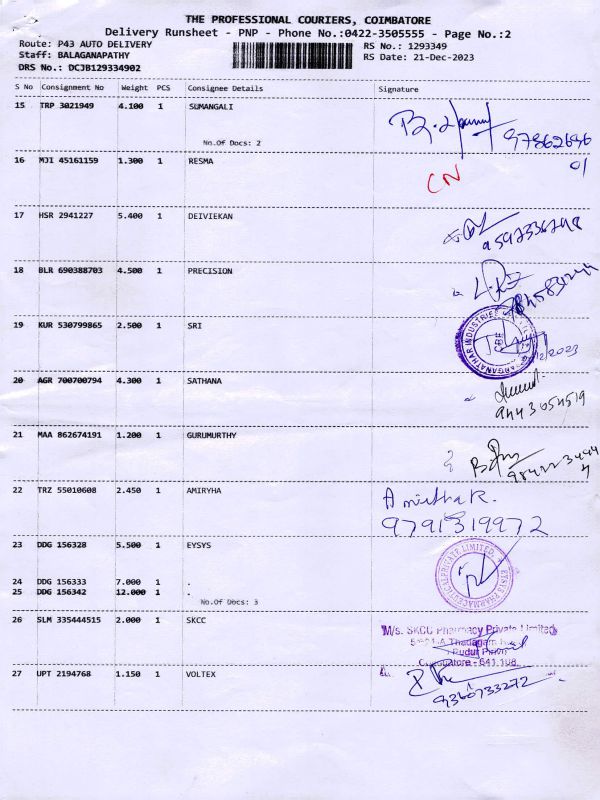 THE PROFESSIONAL COURIERS, COIMBATORE
Delivery Runsheet - PNP - Phone No.:0422-3505555 - Page No.:2
Route: P43 AUTO DELIVERY
RS No.: 1293349
Staff: BALAGANAPATHY
RS Date: 21-Dec-2023
DRS No.: DCJB129334902
S No Consignment No Weight PCS Consignee Details Signature
15 TRP 3021949 4.100 1 SUMANGALI
No.Of Docs: 2
16 MJI 45161159 1.300 1 RESMA
CN
17 HSR 2941227 5.400 1 DEIVIEKAN
18 BLR 690388703 4.500 1 PRECISION
19 KUR 530799865 2.500 1 SRI
20 AGR 700700794 4.300 1 SATHANA
9443054519
21 MAA 862674191 1.200 1 GURUMURTHY
22 TRZ 55010608 2.450 1 AMIRYHA
Amirtha R.
9791319972
23 DDG 156328 5.500 1 EYSYS
24 DDG 156333 7.000 1 .
25 DDG 156342 12.000 1 .
No.Of Docs: 3
26 SLM 335444515 2.000 1 SKCC
M/s. SKCC Pharmacy Private Limited
Coimbatore - 641 108.
27 UPT 2194768 1.150 1 VOLTEX
9360733272